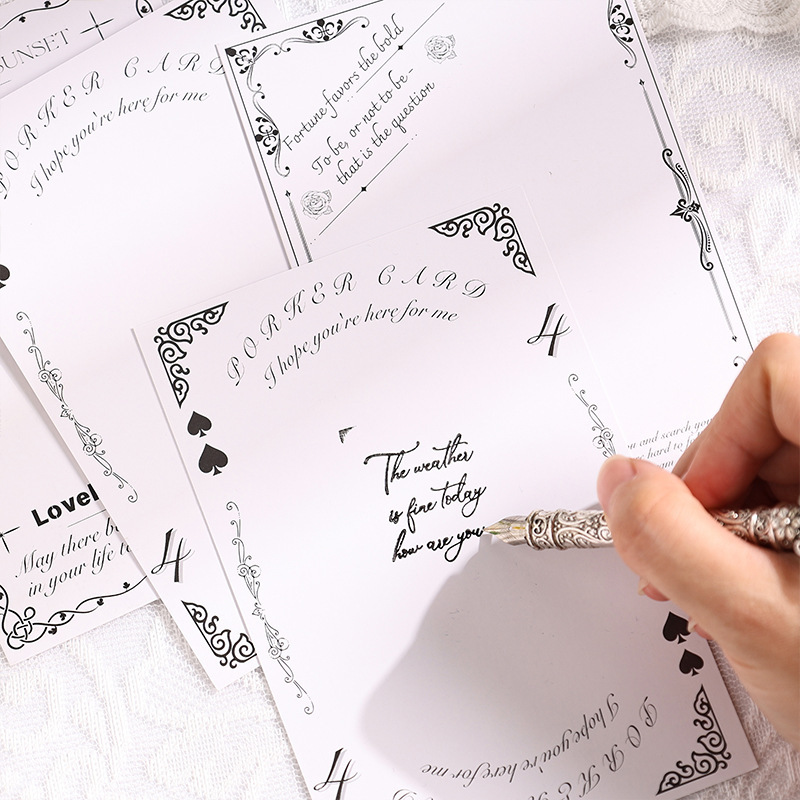 SUNSET
PORKER CARD
I hope you're here for me
Fortune favors the bold
To be, or not to be-
that is the question
PORKER CARD
I hope you're here for me
4
The weather
is fine today
how are you
and search you
hard to
from
Lovel
May there b
in your life to
4
4
I hope you're here for me
PORKE